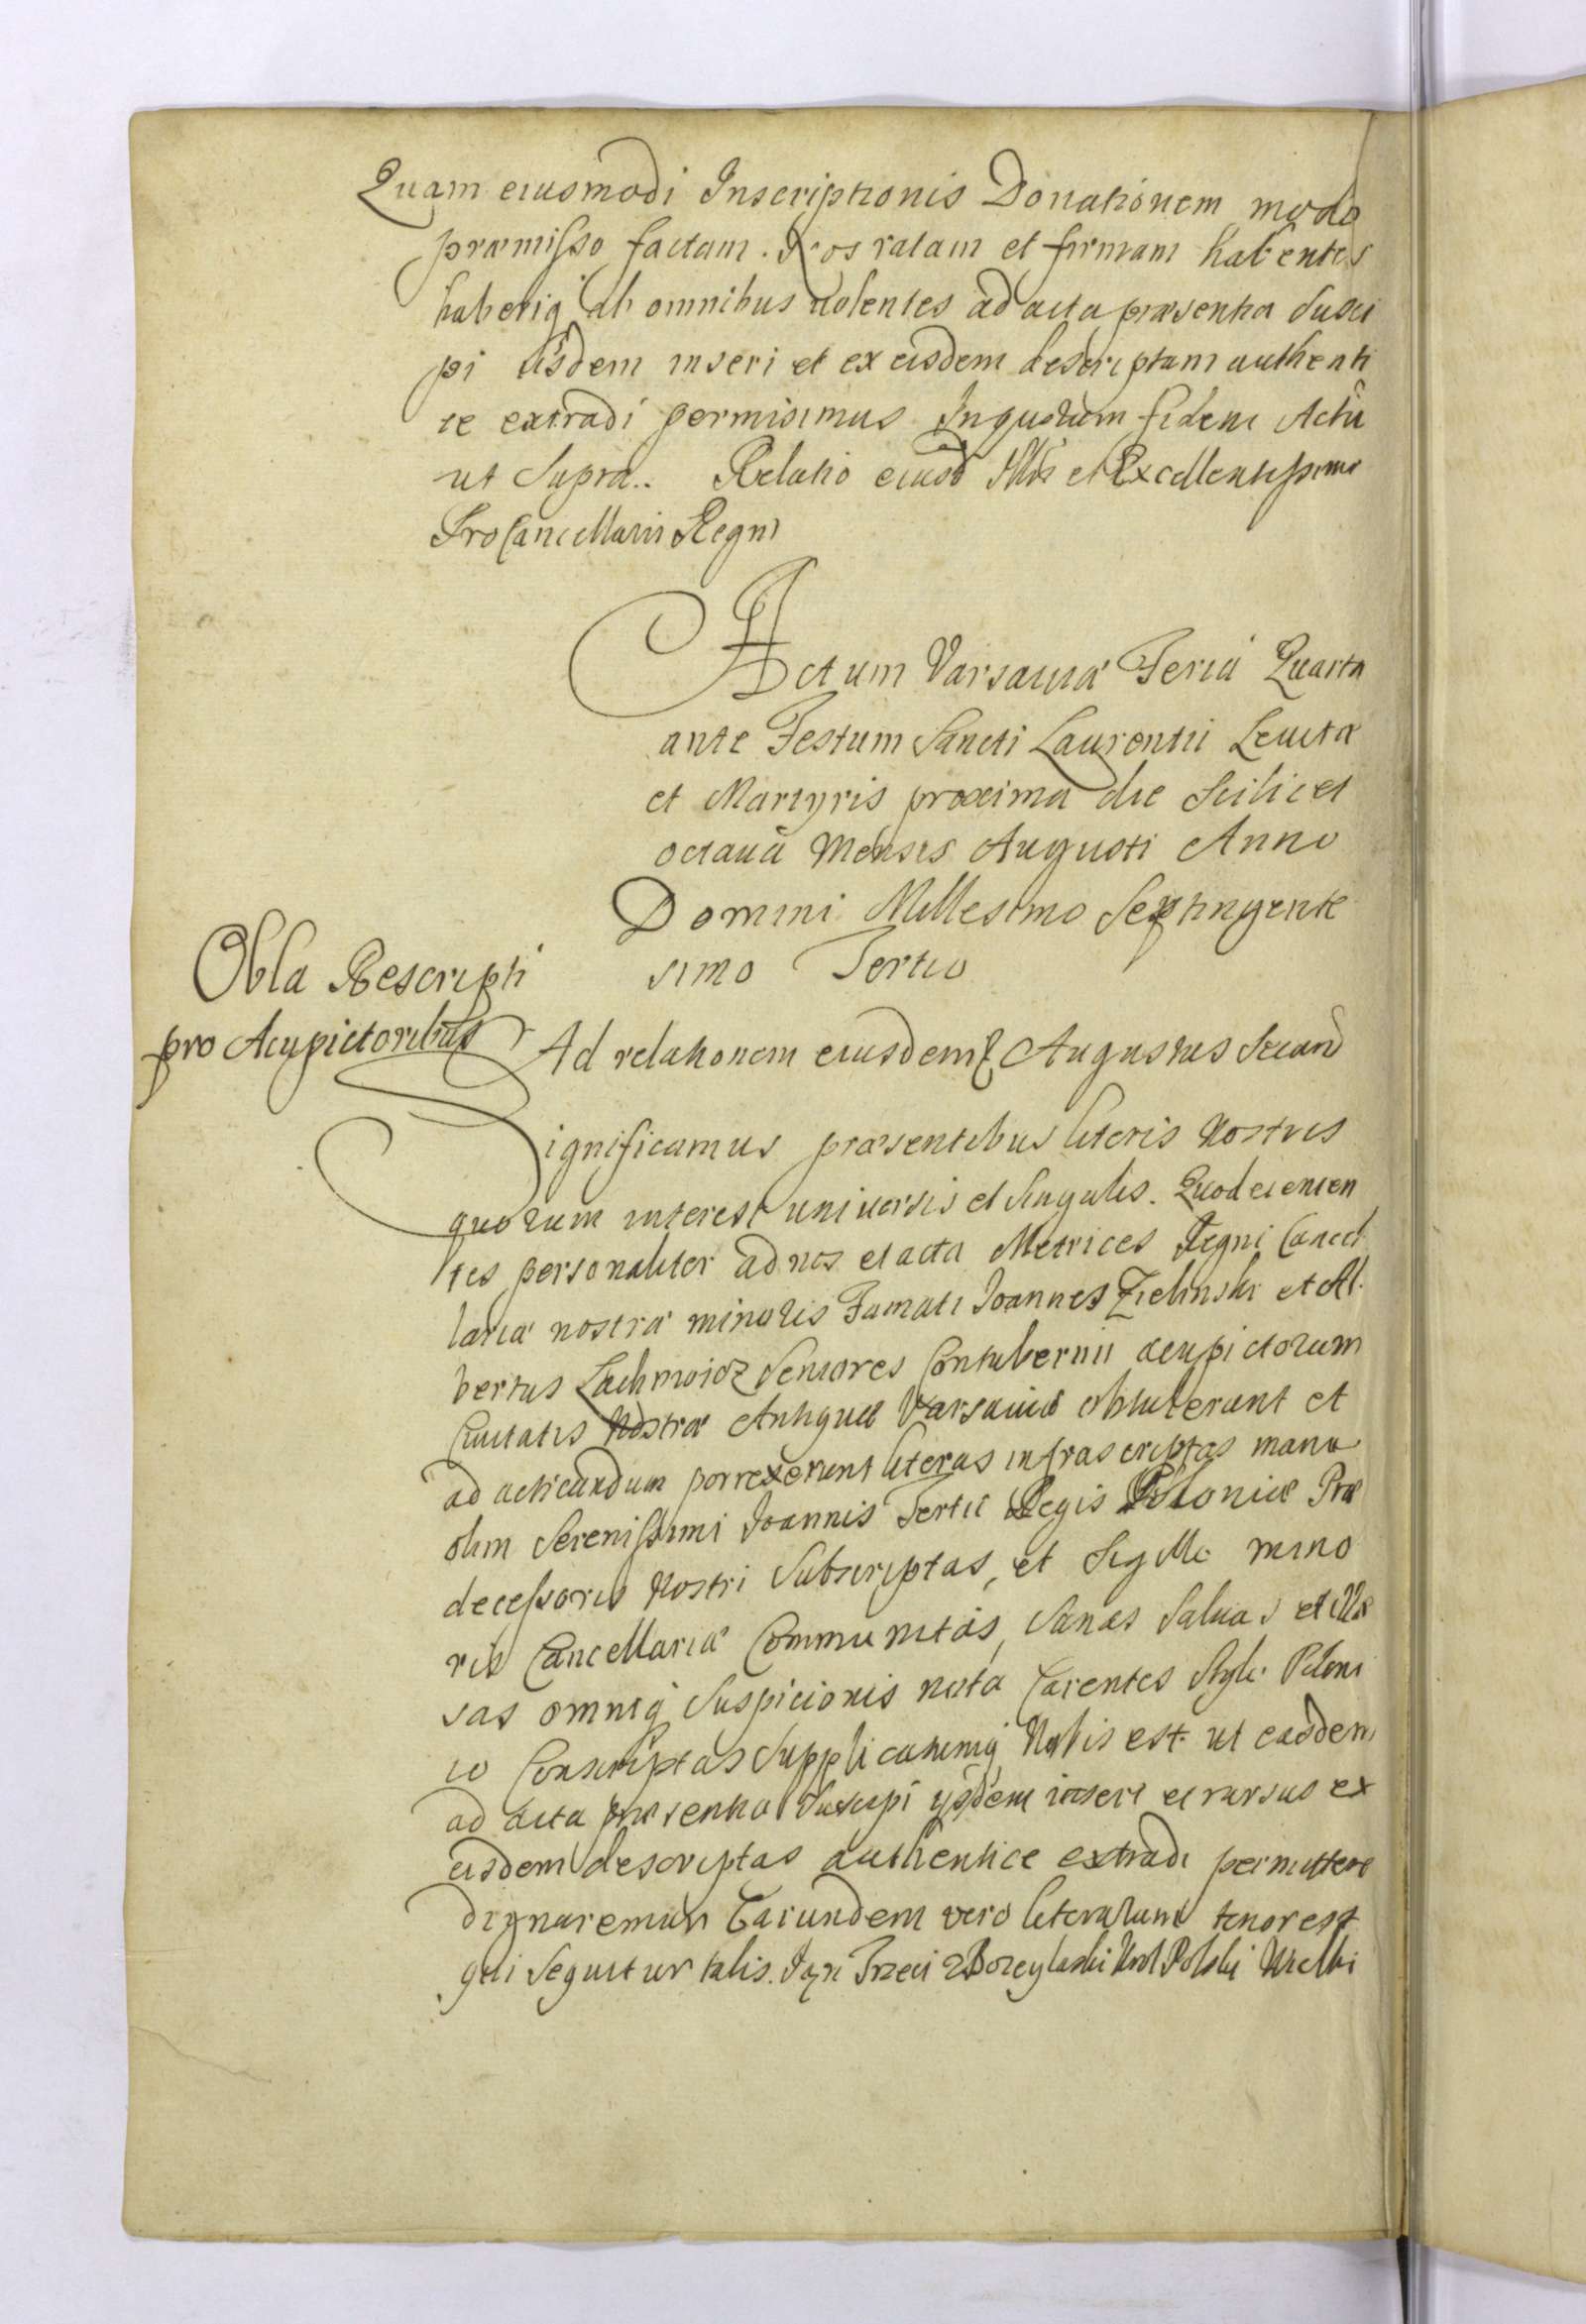 Quam eiusmodi Inscriptionis Donationem modo
præmisso factam. Nos ratam et firmam habentes
haberiq ab omnibus volentes ad acta præsentia susci
pi iisdem inseri et ex eisdem descriptam authenti
ce extradi permisimus Inquorum fidem Actũ
ut supra.. Relatio eiusd Illris et Excellentissimi
ProCancellarii Regni
Actum Varsaviæ Feria Quarta
ante Festum Sancti Laurentii Levitæ
et Martyris proxima die Scilicet
octava Mensis Augusti Anno
Domini Millesimo Septingente
simo Tertio
Obla Rescripti
pro Acupictoribus
Ad relationem eiusdem Augustus Secund
Significamus præsentibus literis Nostris
quorum interest universis et singulis. Quod venien
tes personaliter ad nos et acta Metrices Regni Cancel
lariæ nostræ minoris Famati Joannes Zielinski et Al
bertus Seniores Contubernii acupictorum
Civitatis Nostræ Antiquæ Varsaviæ obtulerunt et
ad acticandum porrexerunt literas infrascriptas manu
olim Serenissimi Joannis Tertii Regis Poloniæ Præ
decessoris Nostri Subscriptas, et Sigillo mino
ris Cancellariæ Communitas, Sanas Salvas et illæ
sas omniq suspicionis nota Carentes Stylo Poloni
co Conscriptas Supplicatumq Nobis est ut easdem
ad acta præsentia suscipi ijsdem inseri et rursus ex
eisdem descriptas authentice extradi permittere
dignaremur Earundem vero literarum tenor est
qui sequitur talis. Jan Trzeci z Bozey łaski Krol Polski Wielki